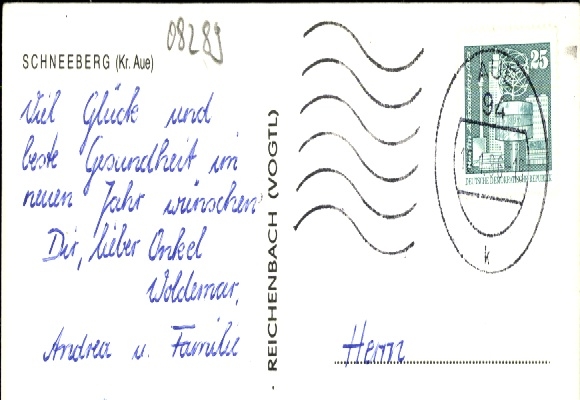 08289
SCHNEEBERG (Kr. Aue)
Viel Glück und
beste Gesundheit im
neuen Jahr wünschen
Dir, lieber Onkel
Woldemar,
Andrea u. Familie
REICHENBACH (VOGTL)
25
AUE
94
DEUTSCHE DEMOKRATISCHE REPUBLIK
k
Herrn